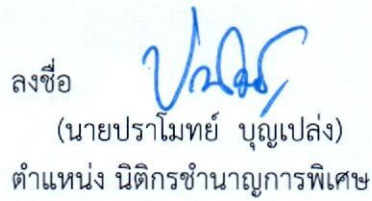 ลงชื่อ
(นายปราโมทย์ บุญเปล่ง)
ตำแหน่ง นิติกรชำนาญการพิเศษ